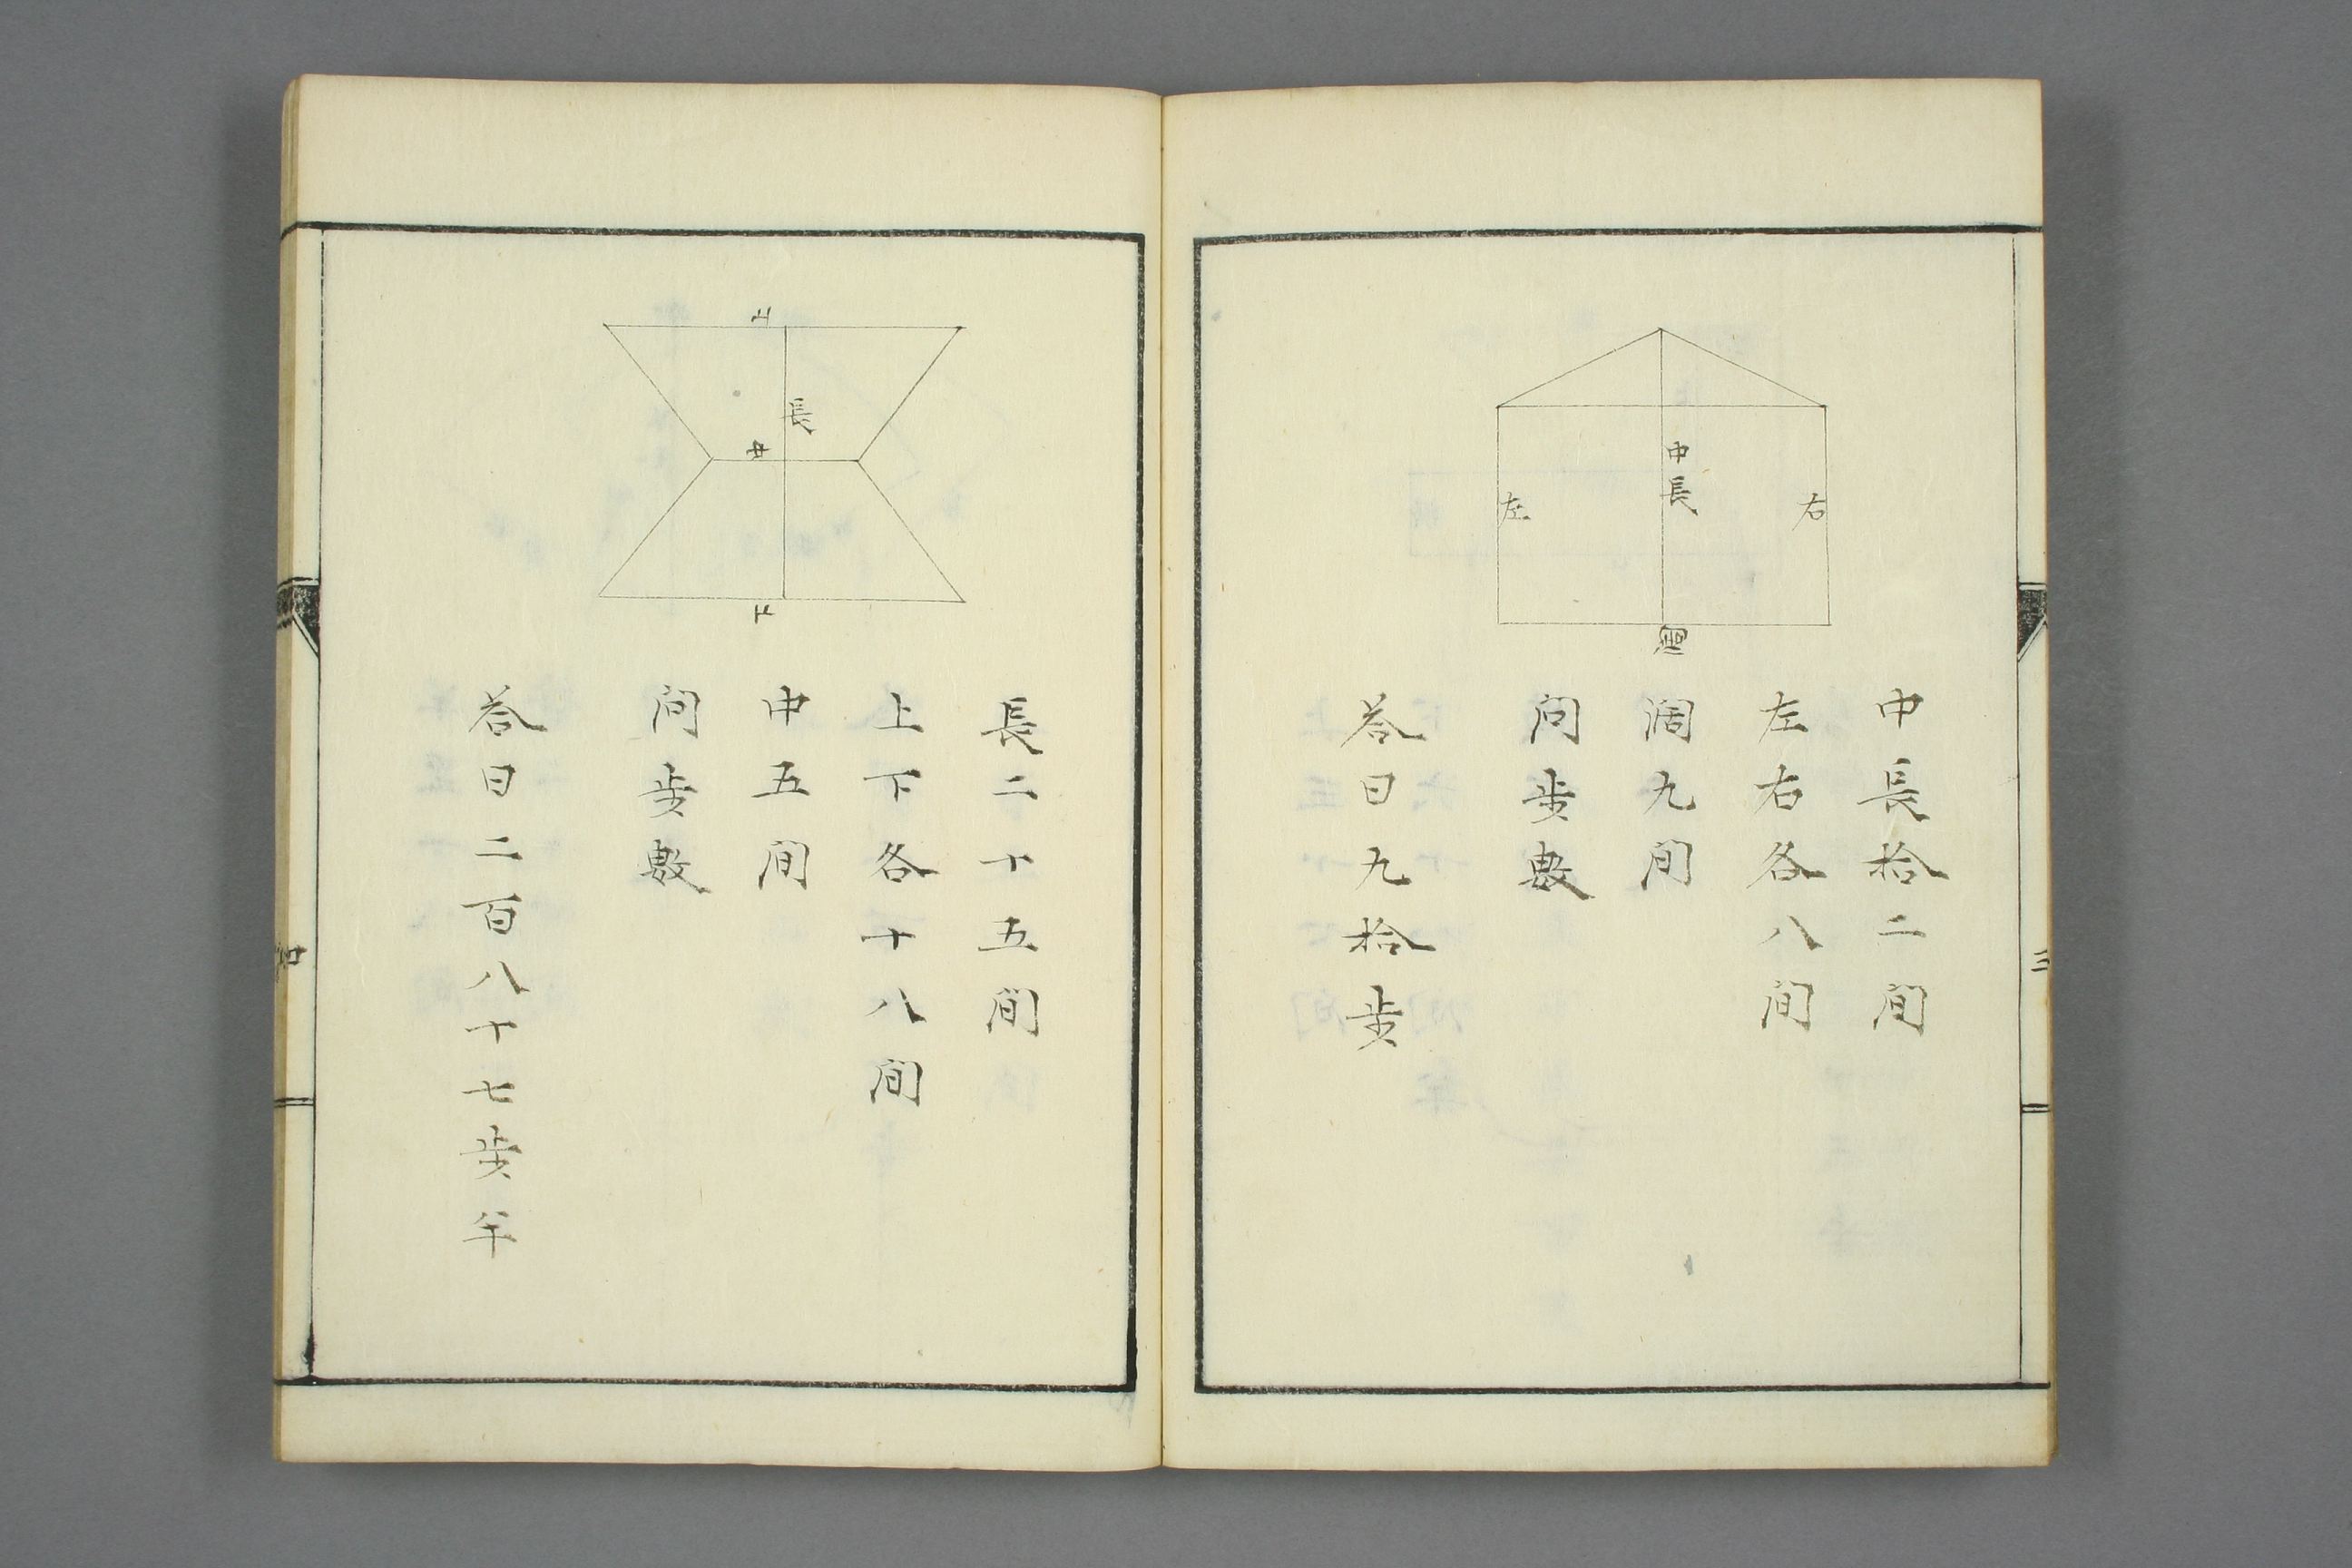 三
右
中長
左
中長拾二間
左右各八間
濶九間
問歩數
荅曰九拾歩
上
長
中
下
長二十五間
上下各十八間
中五間
問歩數
荅曰二百八十七歩半